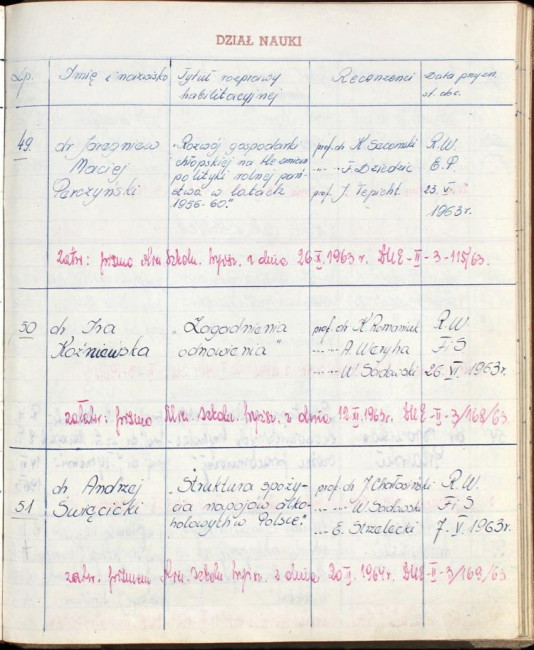 DZIAŁ NAUKI
Lp. Imię i nazwisko Tytuł rozprawy habilitacyjnej Recenzenci Data przyzn. st. doc.
49 dr Jarezniew
Maciej
Parczyński
"Rozwój gospodarki
chłopskiej na tle zmian
polityki rolnej pań
stwa w latach
1956-60."
prof. dr K. Secomski
"— F. Dziedzic
prof. J. Tepicht.
R.W.
E.P.
23. VI.
1963r.
zatw: pismo Min. Szkoln. Wyższ. z dnia 26 X 1963 r. DUE-II-3-115/63.
50 dr Ira
Koźniewska
"Zagadnienia
odnowienia"
prof. dr K. Romaniuk
"— A. Weryha
"— W. Sadowski
R.W.
FiS
26. VI. 1963r.
załatw: pismo Min. Szkoln. Wyższ. z dnia 12 XII. 1963r. DUE-II-3/168/63
51 dr. Andrzej
Święcicki
"Struktura spoży
cia napojów alko
holowych w Polsce."
prof. dr J. Chałasiński
"— W. Sadowski
"— E. Strzelecki
R.W.
FiS
7. V. 1963r.
zatw. pismem Min. Szkoln. Wyższ. z dnia 20 II. 1964r. DUE-II-3/169/63